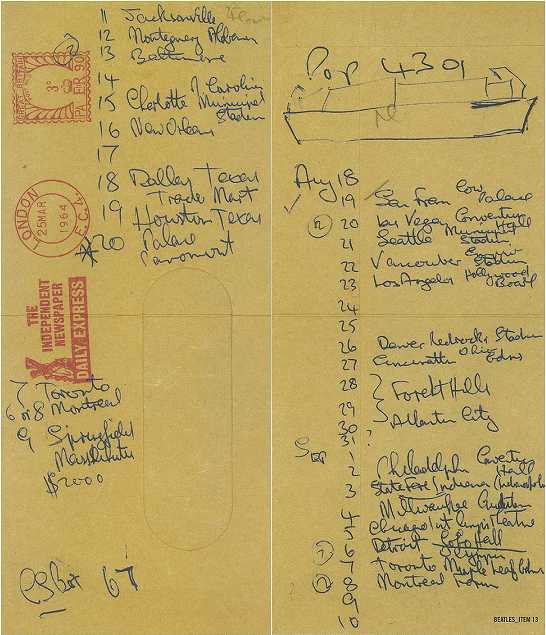 11 Jacksonville
12 Montgomery Alabama
13 Baltimore
14
15 Charlotte N Carolina
Municipal
Stadium
16 New Orleans
17
18 Dallas Texas
Trade Mart
19 Houston Texas
20 Palace
Paramount
2
3D
LONDON
25 MAR
1964
E.C.4.
THE
INDEPENDENT
NEWSPAPER
DAILY EXPRESS
7 Toronto
6 or 8 Montreal
9 Springfield
$2000
67
Pop 4301
Aug 18
19 San Fran Cow
Palace
2 20 Las Vegas Convention
Hall
21 Seattle Municipal
Stadium
22 Vancouver Empire
Stadium
23 Los Angeles Hollywood
Bowl
24
25
26 Denver Redrocks Stadium
27 Cincinatti Ohio Gdns
28 } Forest Hills
29
30 Atlantic City
31 ?
Sep 1
2 Philadelphia
Hall
3 State Fare / Indiana
4 Milwaukee
5 Chicago
6 Detroit
Olympia
7 Toronto Maple Leaf Gdns
8 Montreal Forum
9
10
BEATLES_ITEM 13